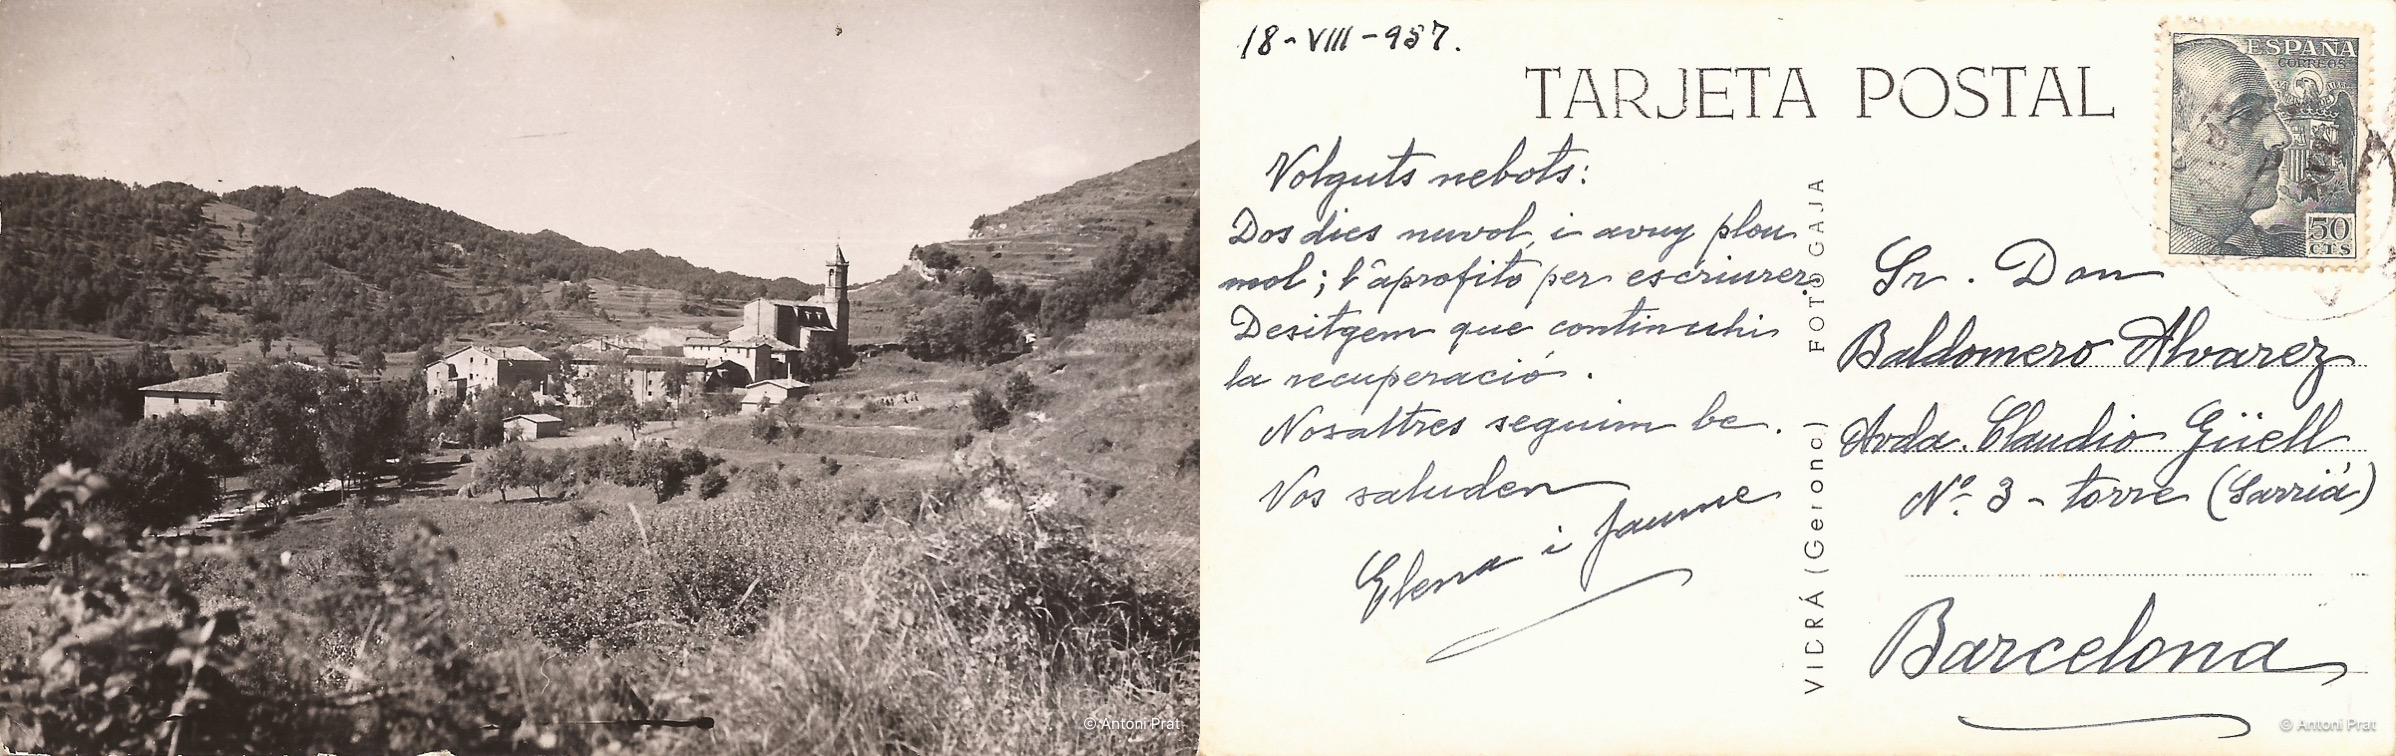 © Antoni Prat
18-VIII-957.
TARJETA POSTAL
ESPAÑA
CORREOS
50
CTS
Volguts nebots:
Dos dies nuvol, i avuy plou
mol; l'aprofito per escriurer.
Desitgem que continuhi
la recuperació.
Nosaltres seguim be.
Vos saluden
Elena i Jaume
VIDRÁ (Gerona) FOTO GAJA
Sr. Don
Baldomero Alvarez
Avda. Claudio Güell
Nº 3 - torre (Sarriá)
Barcelona
© Antoni Prat